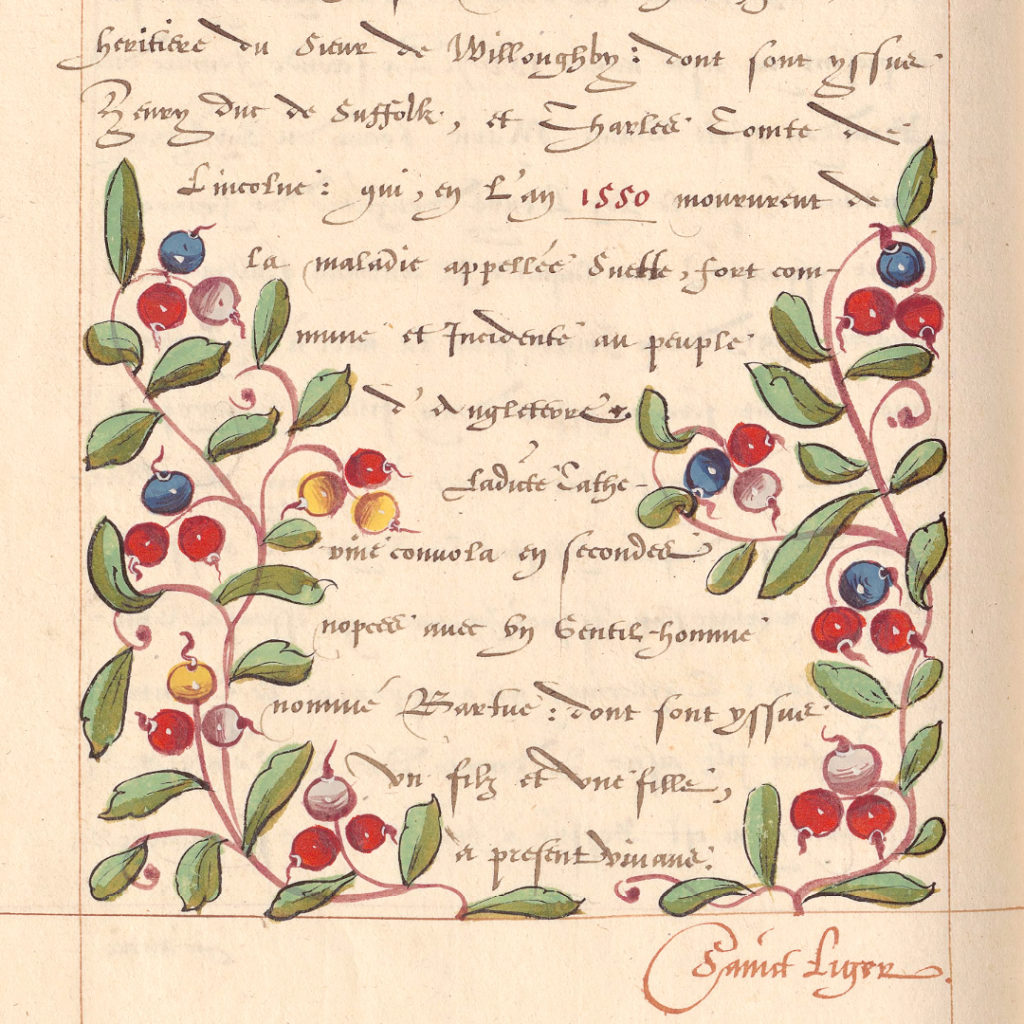 heritiere du Sieur de Willoughby: dont sont yssus
Henry duc de Suffolk, et Charles Comte de
Lincolne: qui, en L'an 1550 moururent de
la maladie appellée Suette, fort com-
mune et Incidente au peuple
d'Angleterre.
Ladicte Cathe-
rine convola en secondes
nopces avec vn Gentil-homme
nommé Bartue: dont sont yssus
vn filz et vne fille,
a present vivans.
Sainct Liger.